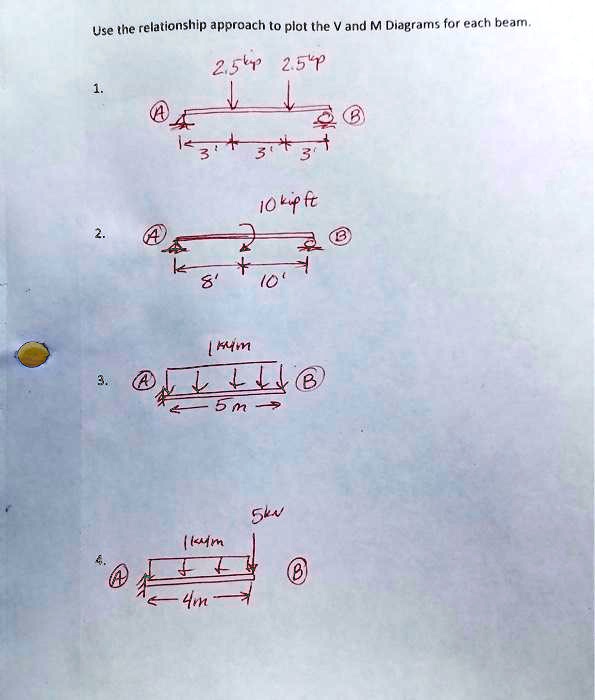 Use the relationship approach to plot the V and M Diagrams for each beam.
2.5kip 2.5kip
1.
A B
3' 3' 3'
10 kip ft
2. A B
8' 10'
1 kN/m
3. A B
5m
5kN
1kN/m
4.
A B
4m